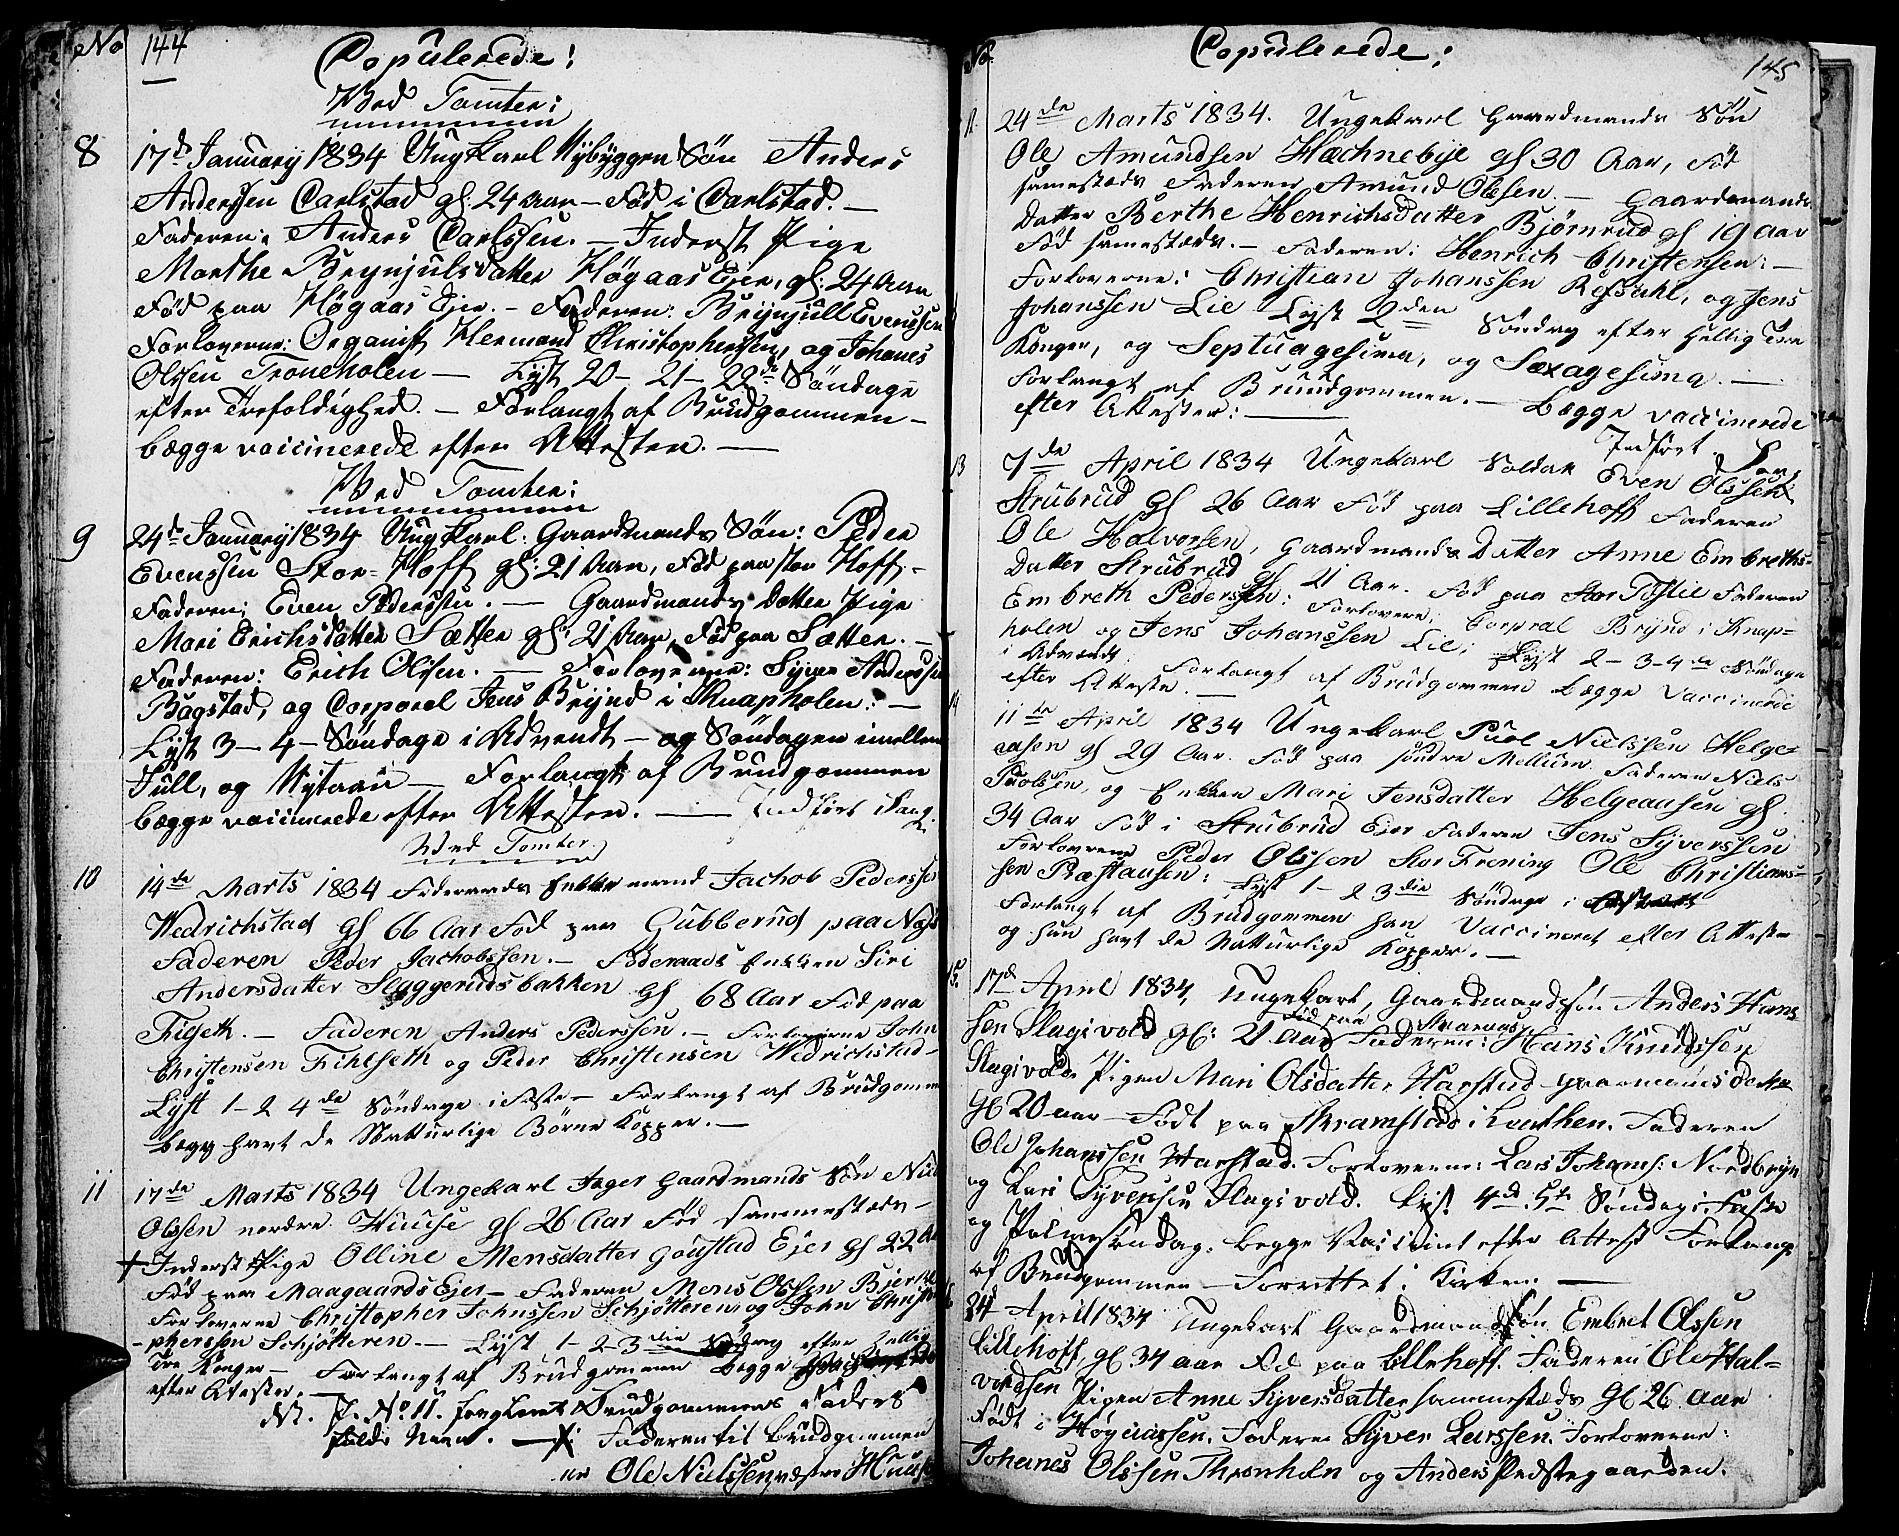 No 144 Copulerede!
Wed Tomter:
8 17de January 1834 Ungkarl Nybyggers Søn Anders
Anderssen Carlstad gl: 24 Aar – Fød i Carlstad. –
Faderen: Anders Carlssen. – Inderst Pige
Marthe Brynjulsdatter Høgaas Ejer, gl: 24 Aar
Fød paa Høgaas Ejer. – Faderen: Brynjull Evenssen
Forloverne: Organist Hermand Christophersen, og Johanes
Olssen Troneholen – Lyst 20– 21– 22de Søndage
efter Trefoldighed. – Forlangt af Brudgommen –
begge vaccinerede efter Attester. –
Wed Tomter:
9 24de January 1834 Ungkarl: Gaardmands Søn: Peder
Evenssen Stor-Hoff gl: 21 Aar, Fød paa stor Hoff. –
Faderen: Even Pederssen. – Gaardmands Datter Pige
Mari Erichsdatter Sætter gl: 21 Aar, Fød paa Sætter. –
Faderen: Erich Olssen. – Forloverne: Syver Anderssen
Bagstad, og Corporal Jens Brynd i Knapholen: –
Lyst 3– 4– Søndage i Advendt – og Søndagen imellem
Jull, og Nytaar – Forlangt af Brudgommen
begge vaccinerede efter Attester. – Indført
Wed Tomter.
10 14de Marts 1834 Føderaads Enkkemand Jachob Pederssen
Wedrichstad gl 66 Aar Fød paa Gubberud paa Næs
Faderen Peder Jachobssen. – Føderaads Enkken Siri
Andersdatter Slaggerudsbakken gl 68 Aar Fød paa
Figeth. – Faderen Anders Pederssen. – Forloverne John
Christensen Fihlseth og Peder Christensen Wedrichstad –
Lyst 1– 2 4de Søndage i Faste – Forlangt af Brudgommen
begge havt de Natturlige Børne Kopper. –
11 17de Marts 1834 Ungekarl Jæger Gaardmands Søn Niels
Olssen nordre Huuse gl 26 Aar Fød sammestæds –
+ Inderst Pige Olline Mensdatter Goustad Ejer gl 22 Aar
Fød paa Maagaards Ejer – Faderen Mons Olssen
Forloverne Christopher Johnssen Schjøtteren og John Christo
-phersen Schjøtteren. – Lyst 1–2–3die Søndag efter Hellig
Tre Konger – Forlangt af Brudgommen begge
efter Attester. –
NB. I No 11. forglemt Brudgommens Faders
fulde Navn. – + Faderen til Brudgommen
er Ole Nielssen nordre Huuse
No. Copulerede: 145
24de Marts 1834. Ungekarl Gaardmands Søn
Ole Amundsen Hæchnebye gl 30 Aar, Fød
samestæds Faderen Amund Olssen – Gaardmands
Datter Berthe Henrichsdatter Bjørnrud gl 19 Aar
Fød samestæds. – Faderen: Henrich Christensen: –
Forloverne: Christian Johanssen Refsahl, og Jens
Johanssen Lie Lyst 2den Søndag efter Hellig Tre
Konger, og Septuagesima, og Sexagesima. –
Forlangt af Bruudgommen. – begge vaccinerede
efter Attester: –
Indført
13 7de April 1834 Ungekarl Soldat Even Olssen
Strubrud gl 26 Aar Fød paa Lillehoff Faderen
Ole Halvorsen, Gaardmands Datter Anne Embreths-
Datter Strubrud gl 21 Aar. Fød paa Stor Tostie Faderen
Embreth Pederssen: Forlovere: Corpral Brynd i Knap-
holen og Jens Johanssen Lie; Lyst 2– 3– 4de Søndage
i Advendt. Forlangt af Brudgommen begge vaccinerede
efter Atteste. –
14 11te April 1834 Ungekarl Puol Nielssen Helge-
ausen gl 29 Aar. Fød paa søndre Mellum Faderen Niels
Puolssen, og Enkken Mari Jensdatter Helgeausen gl.
34 Aar Fød i Strubrud Ejer Faderen Jens Syverssen
Forloverne Peder Olssen Stor Frening Ole Christians-
sen Ræstausen: Lyst 1– 2 3die Søndage i
Forlangt af Brudgommen han Vaccineret efter Atteste
og hun havt de Natturlige Kopper. –
15 17de April 1834, Ungekarl, Gaardmandssøn Anders Hans
sen Slagivold gl: 21 Aar Fød paa Faderen: Hans Knudssen
Slagivold. Pigen Mari Olsdatter Harstad gaarmands datter
gl 20 aar – Født paa Skramstad i Løuthen. Faderen
Ole Johanssen Harstad. Forloverne: Lars Johans: Nordbryn
og Lars Syversen Slagivold. Lyst 4de 5te Søndag i Faste
og Palmesøndag. begge Vaccint efter Attest Forlangt
af Brudgommen – Forrettet i Kirken. –
24de April 1834 Ungekarl Gaardmandssøn Embret Olssen
Lillehoff, gl 34 aar Fød paa Lillehoff. Faderen Ole Hal-
vordsen Pigen Anne Syversdatter sammestæds Gl 26 aar
Født i Høgaassen. Faderen Syver Larssen. Forloverne:
Johanes Olssen Thronholn og Anders Pedstegaarden.